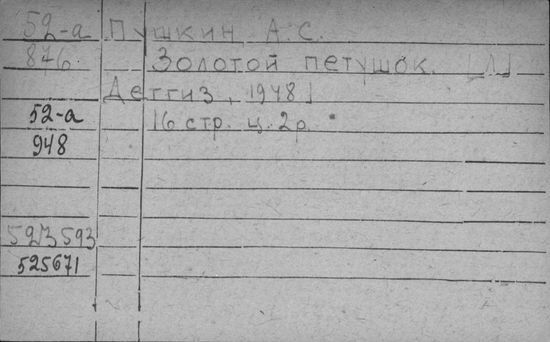 52-а Пушкин А.С.
876. Золотой петушок. [Л]
Детгиз, 1948]
52-а 16 стр. ц. 2р.
948
5213593
525671